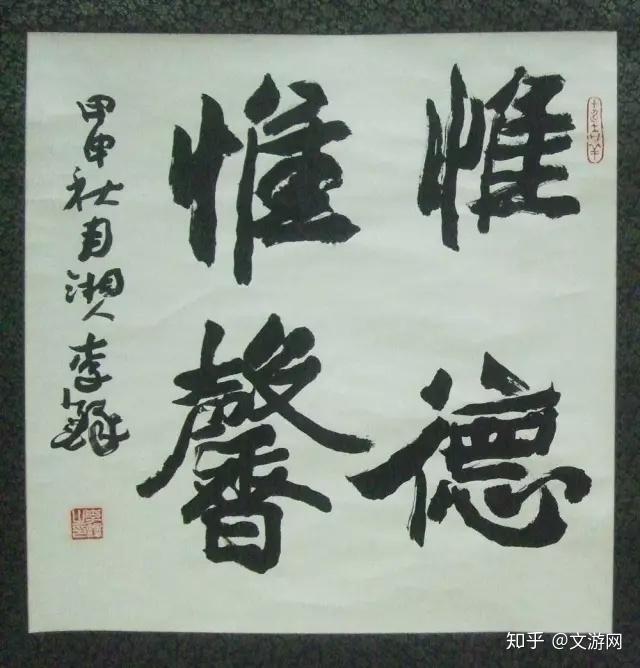 惟德
惟馨
甲申秋月湘人李鐸
知乎 @文游网